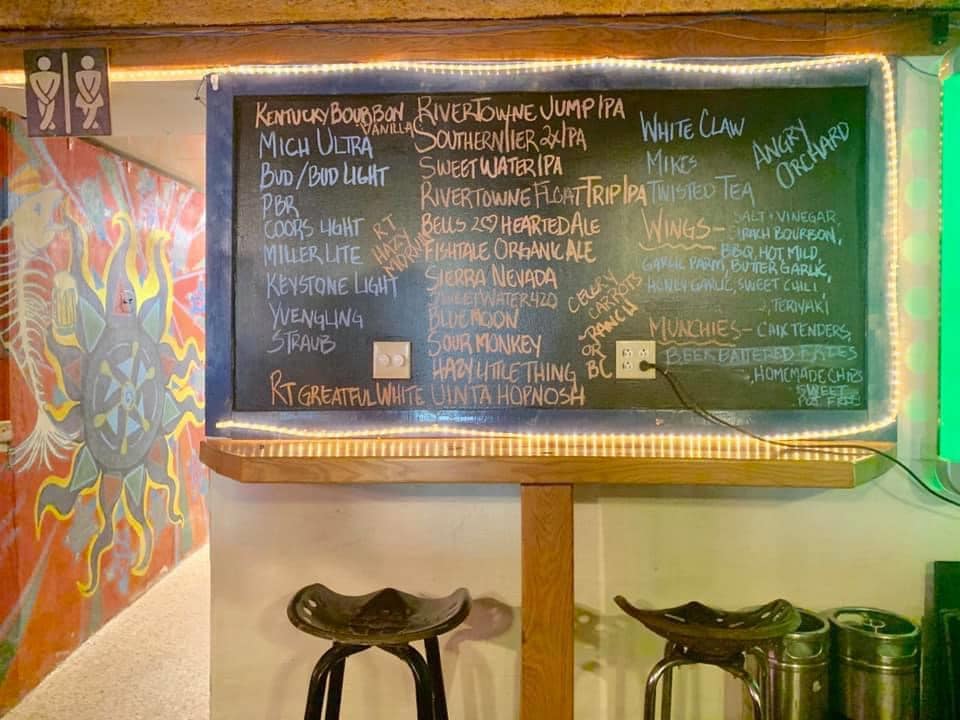 KENTUCKY BOURBON
VANILLA
MICH ULTRA
BUD/BUD LIGHT
PBR
COORS LIGHT
MILLER LITE
KEYSTONE LIGHT
YVENGLING
STRAUB
RT
HAZY
RT GREATFUL WHITE
RIVERTOWNE JUMP IPA
SOUTHERN TIER 2X IPA
SWEETWATER IPA
RIVERTOWNE FLOAT TRIP IPA
BELLS 2♡HEARTED ALE
FISHTALE ORGANIC ALE
SIERRA NEVADA
SWEETWATER 420
BLUE MOON
SOUR MONKEY
HAZY LITTLE THING
UINTA HOPNOSH
WHITE CLAW
MIKES
TWISTED TEA
ANGRY
ORCHARD
WINGS - SALT & VINEGAR,
SIRACH BOURBON,
BBQ, HOT, MILD,
GARLIC PARM, BUTTER GARLIC,
HONEY GARLIC, SWEET CHILI,
TERIYAKI
CELERY
CARROTS
RANCH
OR
BC
MUNCHIES - CHIX TENDERS,
BEER BATTERED FRIES
HOMEMADE CHIPS
SWEET